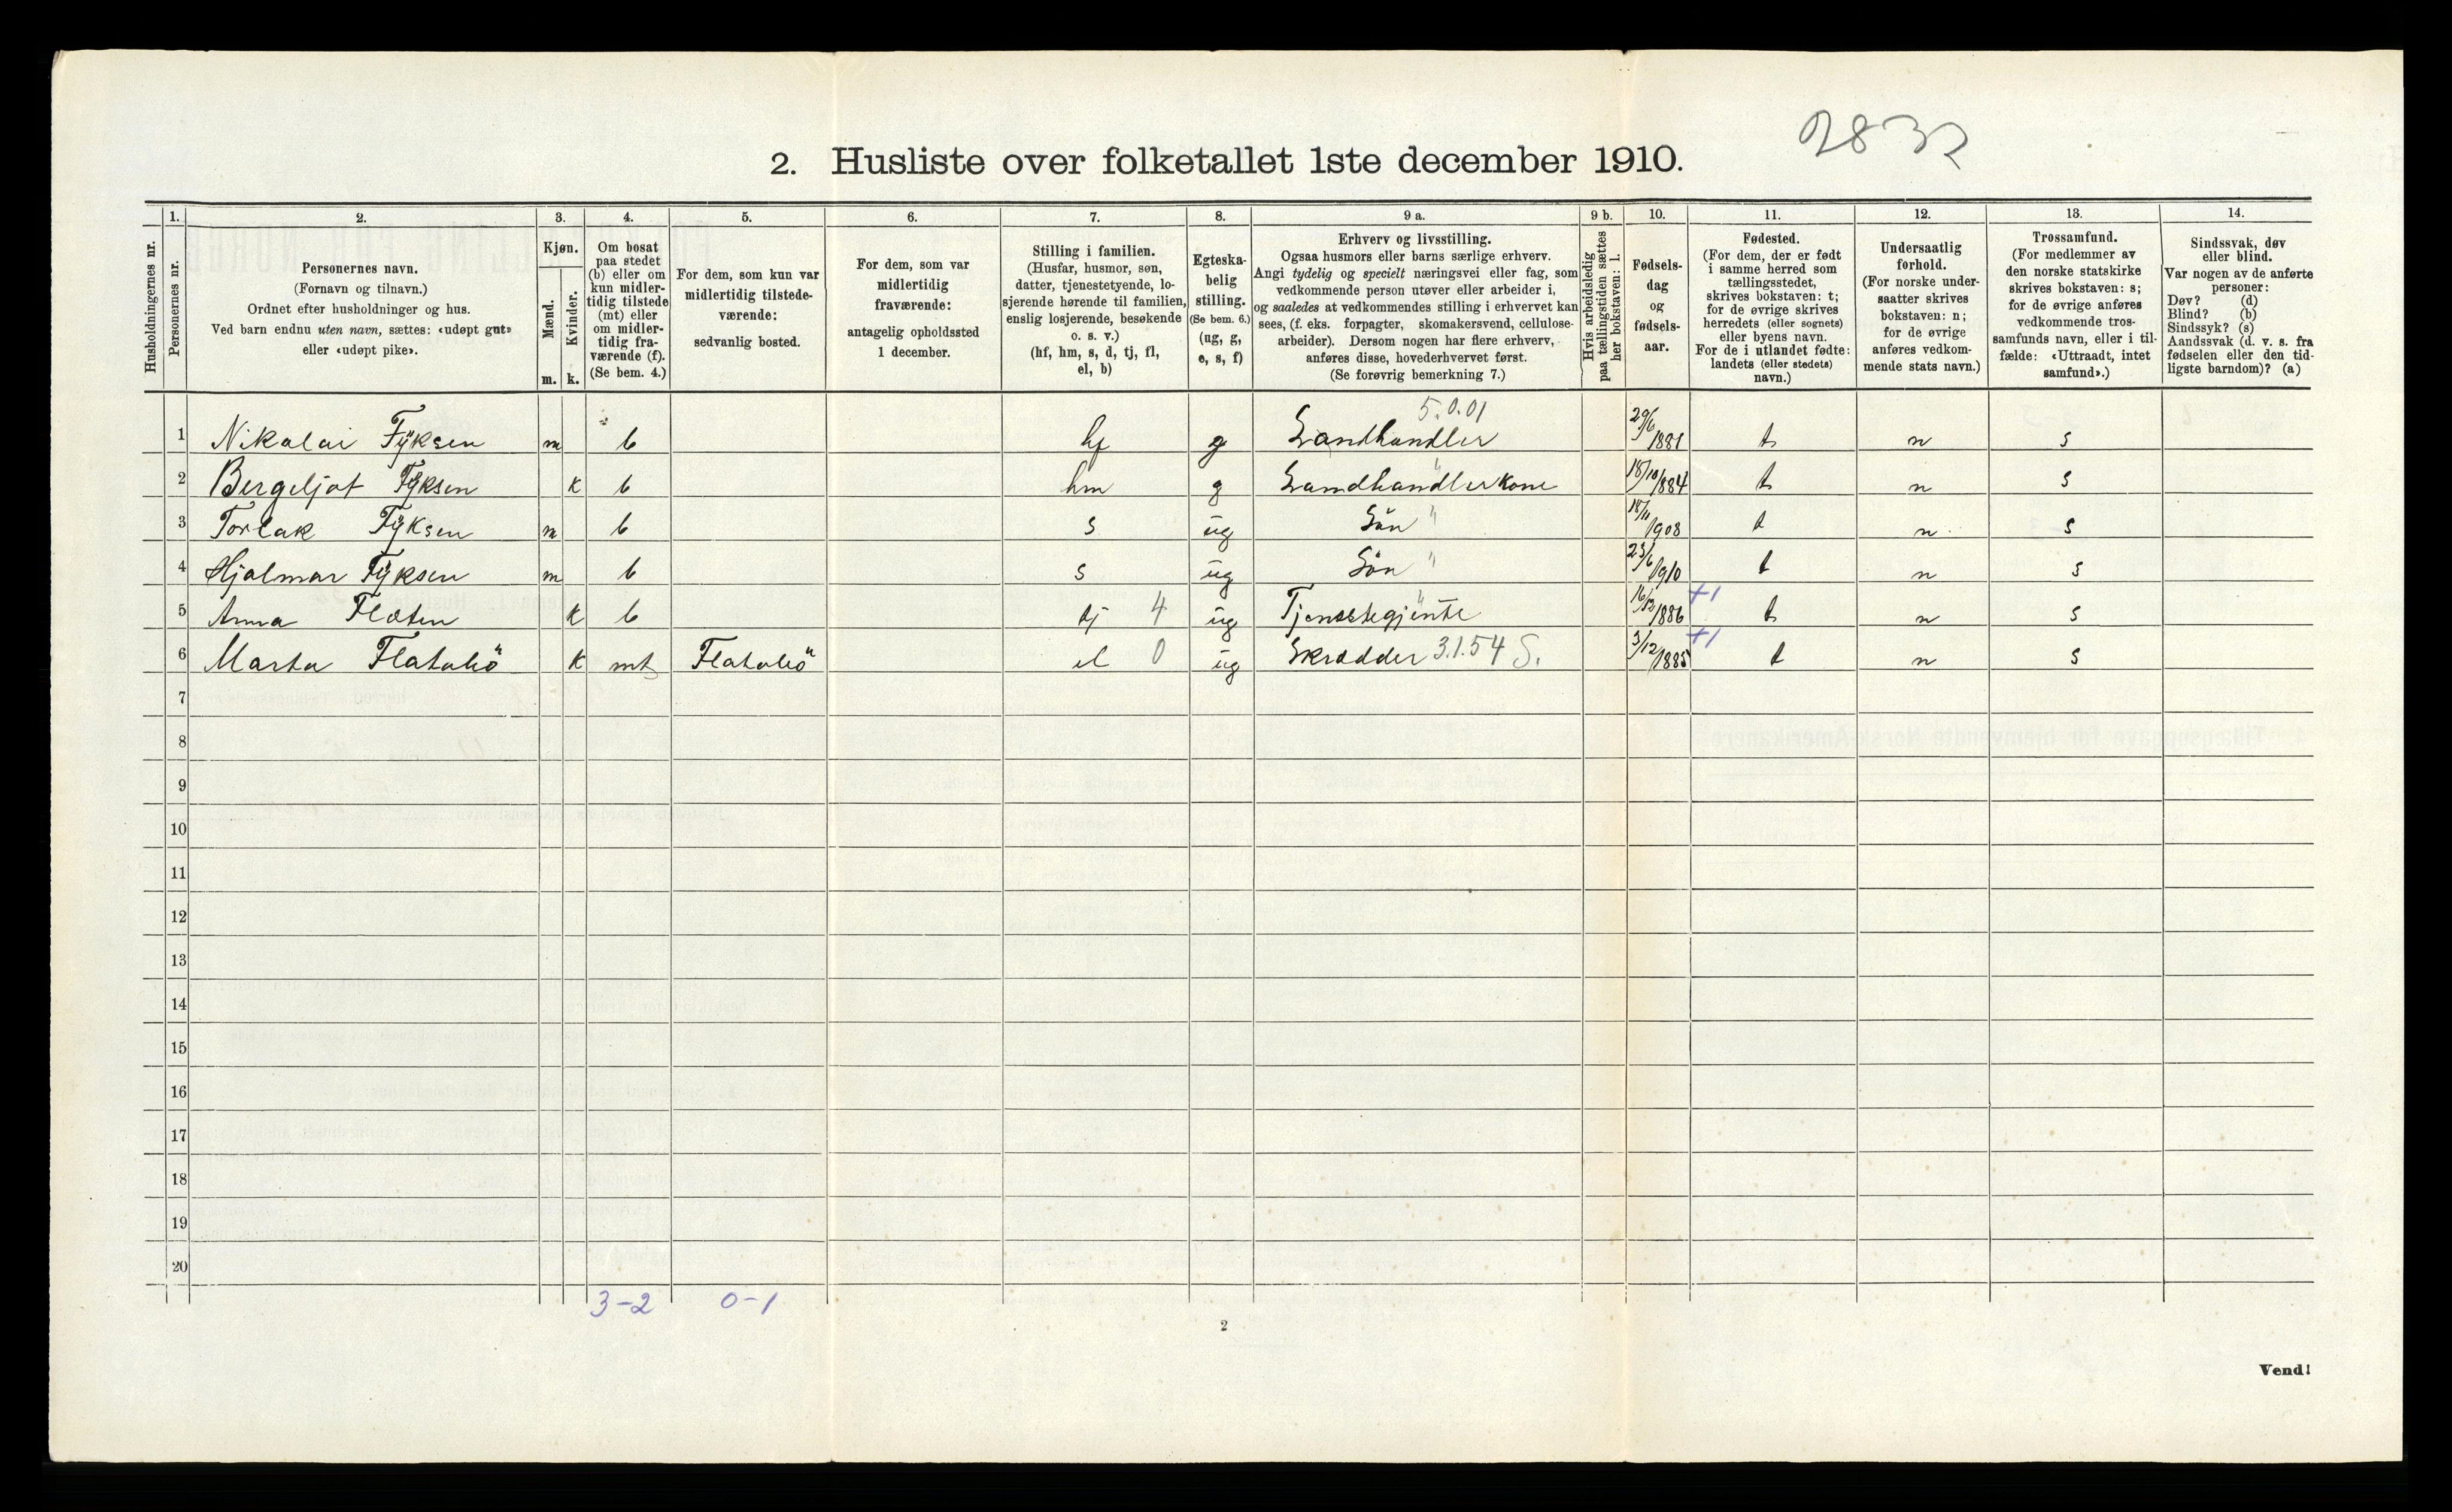 2832
2. Husliste over folketallet 1ste december 1910.
Husholdningernes nr.
1.
Personernes nr.
2.
Personernes navn.
(Fornavn og tilnavn.)
Ordnet efter husholdninger og hus.
Ved barn endnu uten navn, sættes: «udøpt gut»
eller «udøpt pike».
3.
Kjøn.
Mænd.
Kvinder.
m. k.
4.
Om bosat
paa stedet
(b) eller om
kun midler-
tidig tilstede
(mt) eller
om midler-
tidig fra-
værende (f).
(Se bem. 4.)
5.
For dem, som kun var
midlertidig tilstede-
værende:
sedvanlig bosted.
6.
For dem, som var
midlertidig
fraværende:
antagelig opholdssted
1 december.
7.
Stilling i familien.
(Husfar, husmor, søn,
datter, tjenestetyende, lo-
sjerende hørende til familien,
enslig losjerende, besøkende
o. s. v.)
(hf, hm, s, d, tj, fl,
el, b)
8.
Egteska-
belig
stilling.
(Se bem. 6.)
(ug, g,
e, s, f)
9 a.
Erhverv og livsstilling.
Ogsaa husmors eller barns særlige erhverv.
Angi tydelig og specielt næringsvei eller fag, som
vedkommende person utøver eller arbeider i,
og saaledes at vedkommendes stilling i erhvervet kan
sees, (f. eks. forpagter, skomakersvend, cellulose-
arbeider). Dersom nogen har flere erhverv,
anføres disse, hovederhvervet først.
(Se forøvrig bemerkning 7.)
9 b.
Hvis arbeidsledig
paa tællingstiden sættes
her bokstaven: l.
10.
Fødsels-
dag
og
fødsels-
aar.
11.
Fødested.
(For dem, der er født
i samme herred som
tællingsstedet,
skrives bokstaven: t;
for de øvrige skrives
herredets (eller sognets)
eller byens navn.
For de i utlandet fødte:
landets (eller stedets)
navn.)
12.
Undersaatlig
forhold.
(For norske under-
saatter skrives
bokstaven: n;
for de øvrige
anføres vedkom-
mende stats navn.)
13.
Trossamfund.
(For medlemmer av
den norske statskirke
skrives bokstaven: s;
for de øvrige anføres
vedkommende tros-
samfunds navn, eller i til-
fælde: «Uttraadt, intet
samfund».)
14.
Sindssvak, døv
eller blind.
Var nogen av de anførte
personer:
Døv? (d)
Blind? (b)
Sindssyk? (s)
Aandssvak (d. v. s. fra
fødselen eller den tid-
ligste barndom)? (a)
5.0.01
1 Nikolai Fÿksen m b hf g Landhandler 29/6 1881 t n s
2 Bergeljot Fÿksen k b hm g Landhandlerkone " 18/10 1884 t n s
3 Torlak Fÿksen m b s ug Sön " 18/11 1908 t n s
4 Hjalmar Fÿksen m b s ug Sön " 23/6 1910 t n s
5 Anna Flaten k b tj 4 ug Tjenestegjente " 16/12 1886 +1 t n s
6 Marta Flatabö k mt Flatabö el 0 ug Skrædder 3.1.54 S. 3/12 1885 +1 t n s
7
8
9
10
11
12
13
14
15
16
17
18
19
20
3-2 0-1
2
Vend!